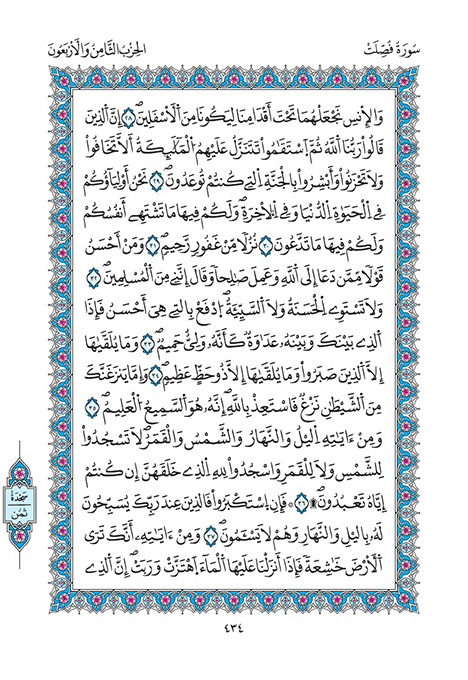 سورة فصلت الحزب الثامن والأربعون
وَالْإِنسِ نَجْعَلْهُمَا تَحْتَ أَقْدَامِنَا لِيَكُونَا مِنَ الْأَسْفَلِينَ ۝٢٨ إِنَّ الذِينَ
قَالُوا رَبُّنَا اللَّهُ ثُمَّ اسْتَقَٰمُوا تَتَنَزَّلُ عَلَيْهِمُ الْمَلَٰٓئِكَةُ أَلَّا تَخَافُوا
وَلَا تَحْزَنُوا وَأَبْشِرُوا بِالْجَنَّةِ التِي كُنتُمْ تُوعَدُونَ ۝٢٩ نَحْنُ أَوْلِيَاؤُكُمْ
فِي الْحَيَوٰةِ الدُّنْيَا وَفِي الْأَخِرَةِ وَلَكُمْ فِيهَا مَا تَشْتَهِي أَنفُسُكُمْ
وَلَكُمْ فِيهَا مَا تَدَّعُونَ ۝٣٠ نُزُلًا مِّنْ غَفُورٍ رَّحِيمٍ ۝٣١ وَمَنْ أَحْسَنُ
قَوْلًا مِّمَّن دَعَا إِلَى اللَّهِ وَعَمِلَ صَٰلِحًا وَقَالَ إِنَّنِي مِنَ الْمُسْلِمِينَ ۝٣٢
وَلَا تَسْتَوِي الْحَسَنَةُ وَلَا السَّيِّئَةُ ادْفَعْ بِالتِي هِيَ أَحْسَنُ فَإِذَا
الذِي بَيْنَكَ وَبَيْنَهُ عَدَٰوَةٌ كَأَنَّهُ وَلِيٌّ حَمِيمٌ ۝٣٣ وَمَا يُلَقَّيٰهَا
إِلَّا الذِينَ صَبَرُوا وَمَا يُلَقَّيٰهَا إِلَّا ذُو حَظٍّ عَظِيمٍ ۝٣٤ وَإِمَّا يَنزَغَنَّكَ
مِنَ الشَّيْطَٰنِ نَزْغٌ فَاسْتَعِذْ بِاللَّهِ إِنَّهُ هُوَ السَّمِيعُ الْعَلِيمُ ۝٣٥
وَمِنْ ءَايَٰتِهِ اليْلُ وَالنَّهَارُ وَالشَّمْسُ وَالْقَمَرُ لَا تَسْجُدُوا
لِلشَّمْسِ وَلَا لِلْقَمَرِ وَاسْجُدُوا لِلهِ الذِي خَلَقَهُنَّ إِن كُنتُمْ
إِيَّاهُ تَعْبُدُونَ ۝٣٦ ۞ فَإِنِ اسْتَكْبَرُوا فَالذِينَ عِندَ رَبِّكَ يُسَبِّحُونَ
لَهُ بِاليْلِ وَالنَّهَارِ وَهُمْ لَا يَسْـَٔمُونَ ۝٣٧ وَمِنْ ءَايَٰتِهِ أَنَّكَ تَرَى
الْأَرْضَ خَٰشِعَةً فَإِذَا أَنزَلْنَا عَلَيْهَا الْمَاءَ اهْتَزَّتْ وَرَبَتْ إِنَّ الذِي
سجدة
ثمن
٤٣٤